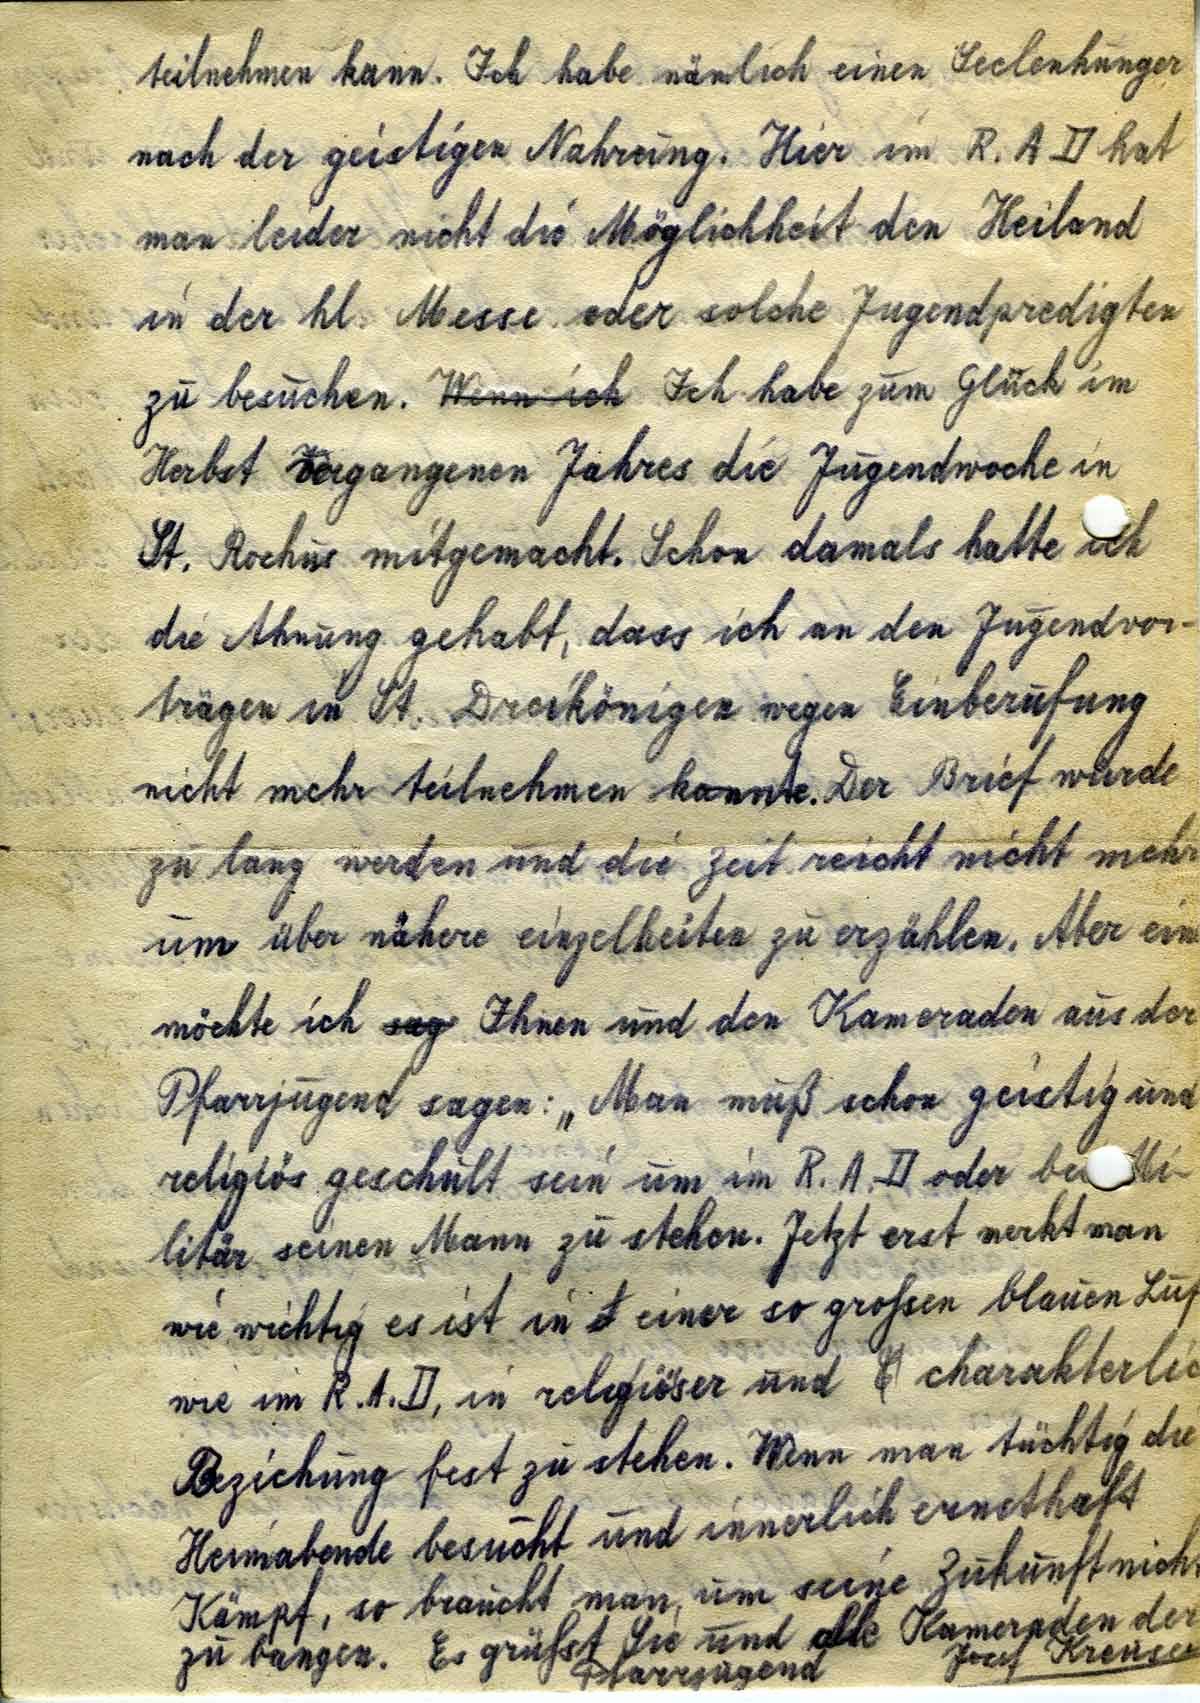 teilnehmen kann. Ich habe nämlich einen Seelenhunger
nach der geistigen Nahrung. Hier im R. A D hat
man leider nicht die Möglichkeit den Heiland
in der hl. Messe oder solche Jugendpredigten
zu besuchen. Wenn ich Ich habe zum Glück im
Herbst vergangenen Jahres die Jugendwoche in
St. Rochus mitgemacht. Schon damals hatte ich
die Ahnung gehabt, dass ich an den Jugendvor-
trägen in St. Dreikönigen wegen Einberufung
nicht mehr teilnehmen kannte. Der Brief würde
zu lang werden und die Zeit reicht nicht mehr
um über nähere einzelheiten zu erzählen. Aber ein
möchte ich sag Ihnen und den Kameraden aus der
Pfarrjugend sagen: „Man muß schon geistig und
religiös geschult sein um im R. A. D oder bei Mi-
litär seinen Mann zu stehen. Jetzt erst merkt man
wie wichtig es ist in einer so großen blauen Luf
wie im R. A. D, in religiöser und charakterlic
Beziehung fest zu stehen. Wenn man tüchtig die
Heimabende besucht und innerlich ernsthaft
Kämpf, so braucht man um seine Zukunft nicht
zu bangen. Es grüßt Sie und alle Kameraden der
Pfarrjugend Josef Kreuser